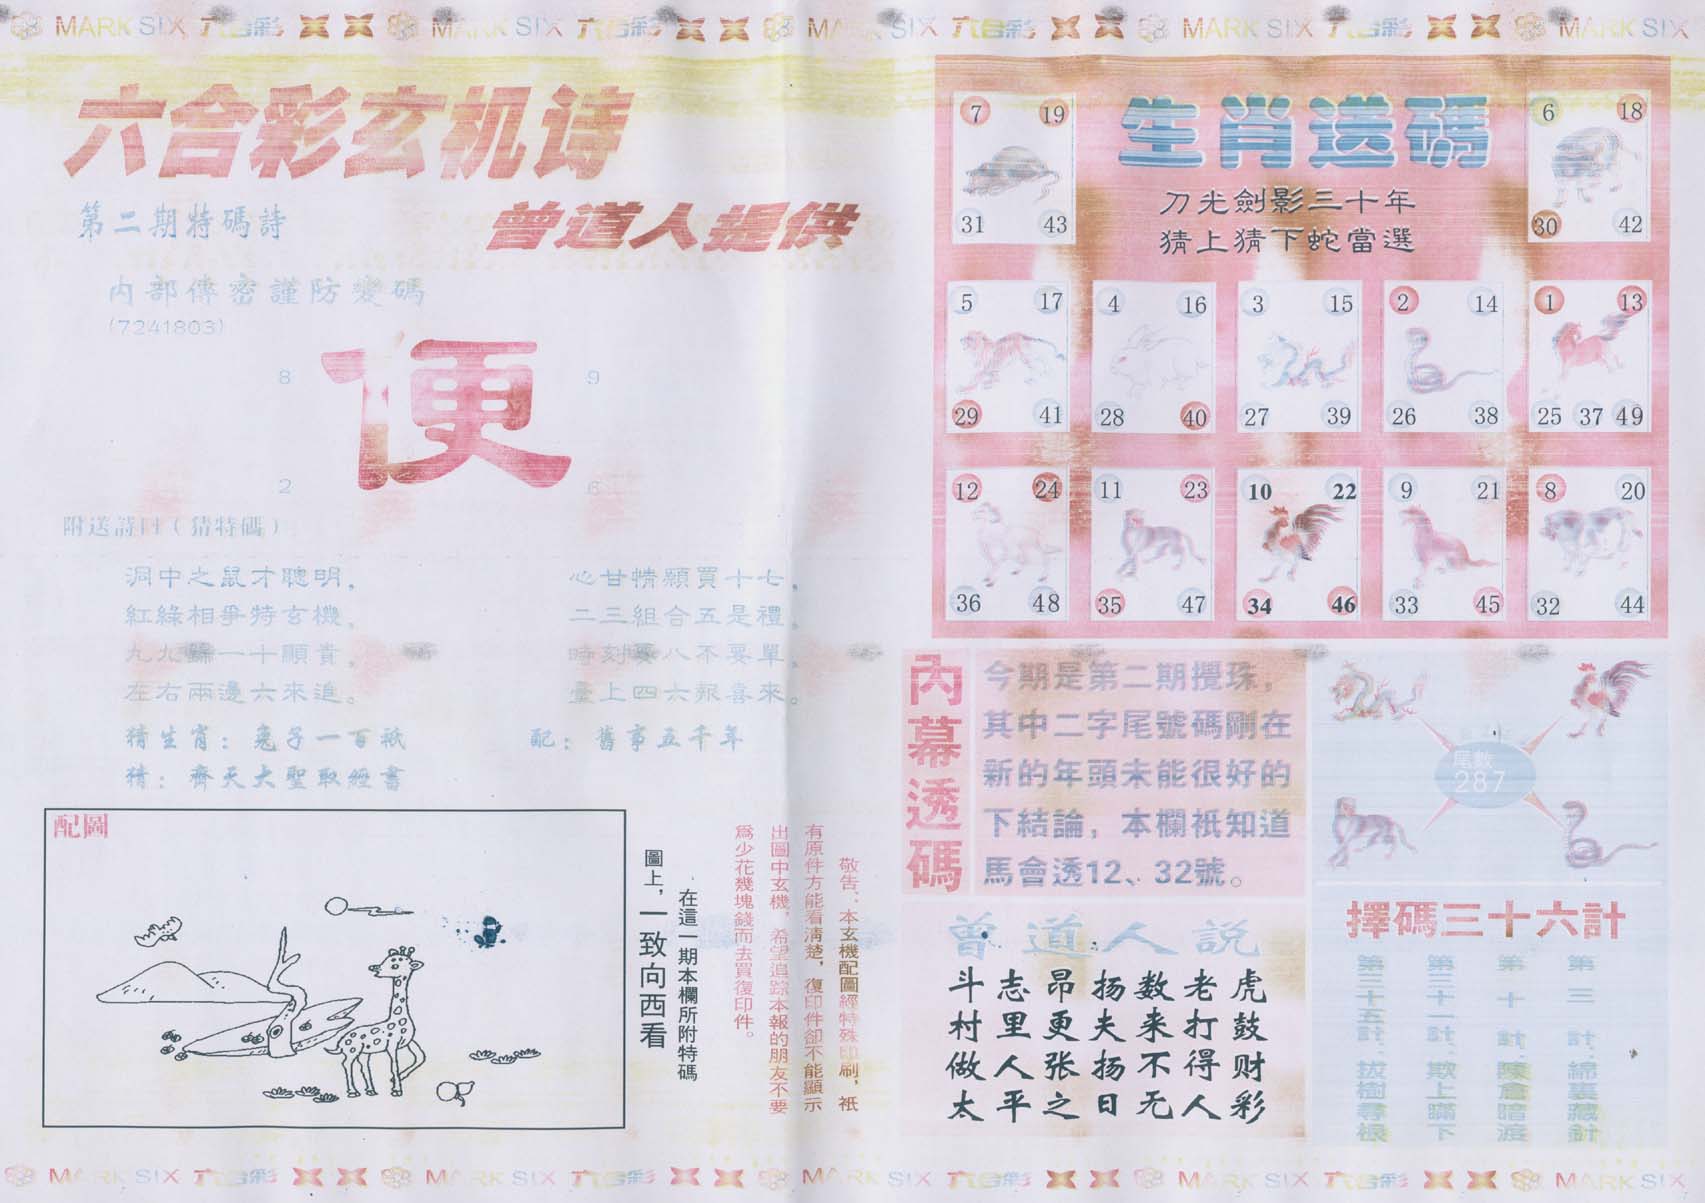 MARK SIX 六合彩 MARK SIX 六合彩 MARK SIX 六合彩 MARK SIX 六合彩 MARK SIX
六合彩玄机诗
第二期特碼詩
曾道人提供
内部傳密謹防變碼
(7241803)
8 9
便
2 6
附送詩四（猜特碼）
洞中之鼠才聰明，
紅綠相爭特玄機，
九九歸一十順貴，
在右兩邊六來追。
心甘情願買十七，
二三組合五是禮，
時刻要八不要單，
臺上四六報喜來。
猜生肖：兔子一百祇
配：舊事五千年
猜：齊天大聖取經書
配圖
在這一期本欄所附特碼
圖上，一致向西看
敬告：本玄機配圖經特殊印刷，祇
有原件方能看清楚，復印件卻不能顯示
出圖中玄機，希望追踪本報的朋友不要
爲少花幾塊錢而去買復印件。
生肖送碼
刀光劍影三十年
猜上猜下蛇當選
7 19
31 43
6 18
30 42
5 17
29 41
4 16
28 40
3 15
27 39
2 14
26 38
1 13
25 37 49
12 24
36 48
11 23
35 47
10 22
34 46
9 21
33 45
8 20
32 44
內幕透碼
今期是第二期攪珠，
其中二字尾號碼剛在
新的年頭未能很好的
下結論，本欄祇知道
馬會透12、32號。
尾數
287
曾道人說
斗志昂扬数老虎
村里更夫来打鼓
做人张扬不得财
太平之日无人彩
擇碼三十六計
第三計：綿裏藏針
第十計：陳倉暗渡
第三十一計：欺上瞞下
第三十五計：拔樹尋根
MARK SIX 六合彩 MARK SIX 六合彩 MARK SIX 六合彩 MARK SIX 六合彩 MARK SIX